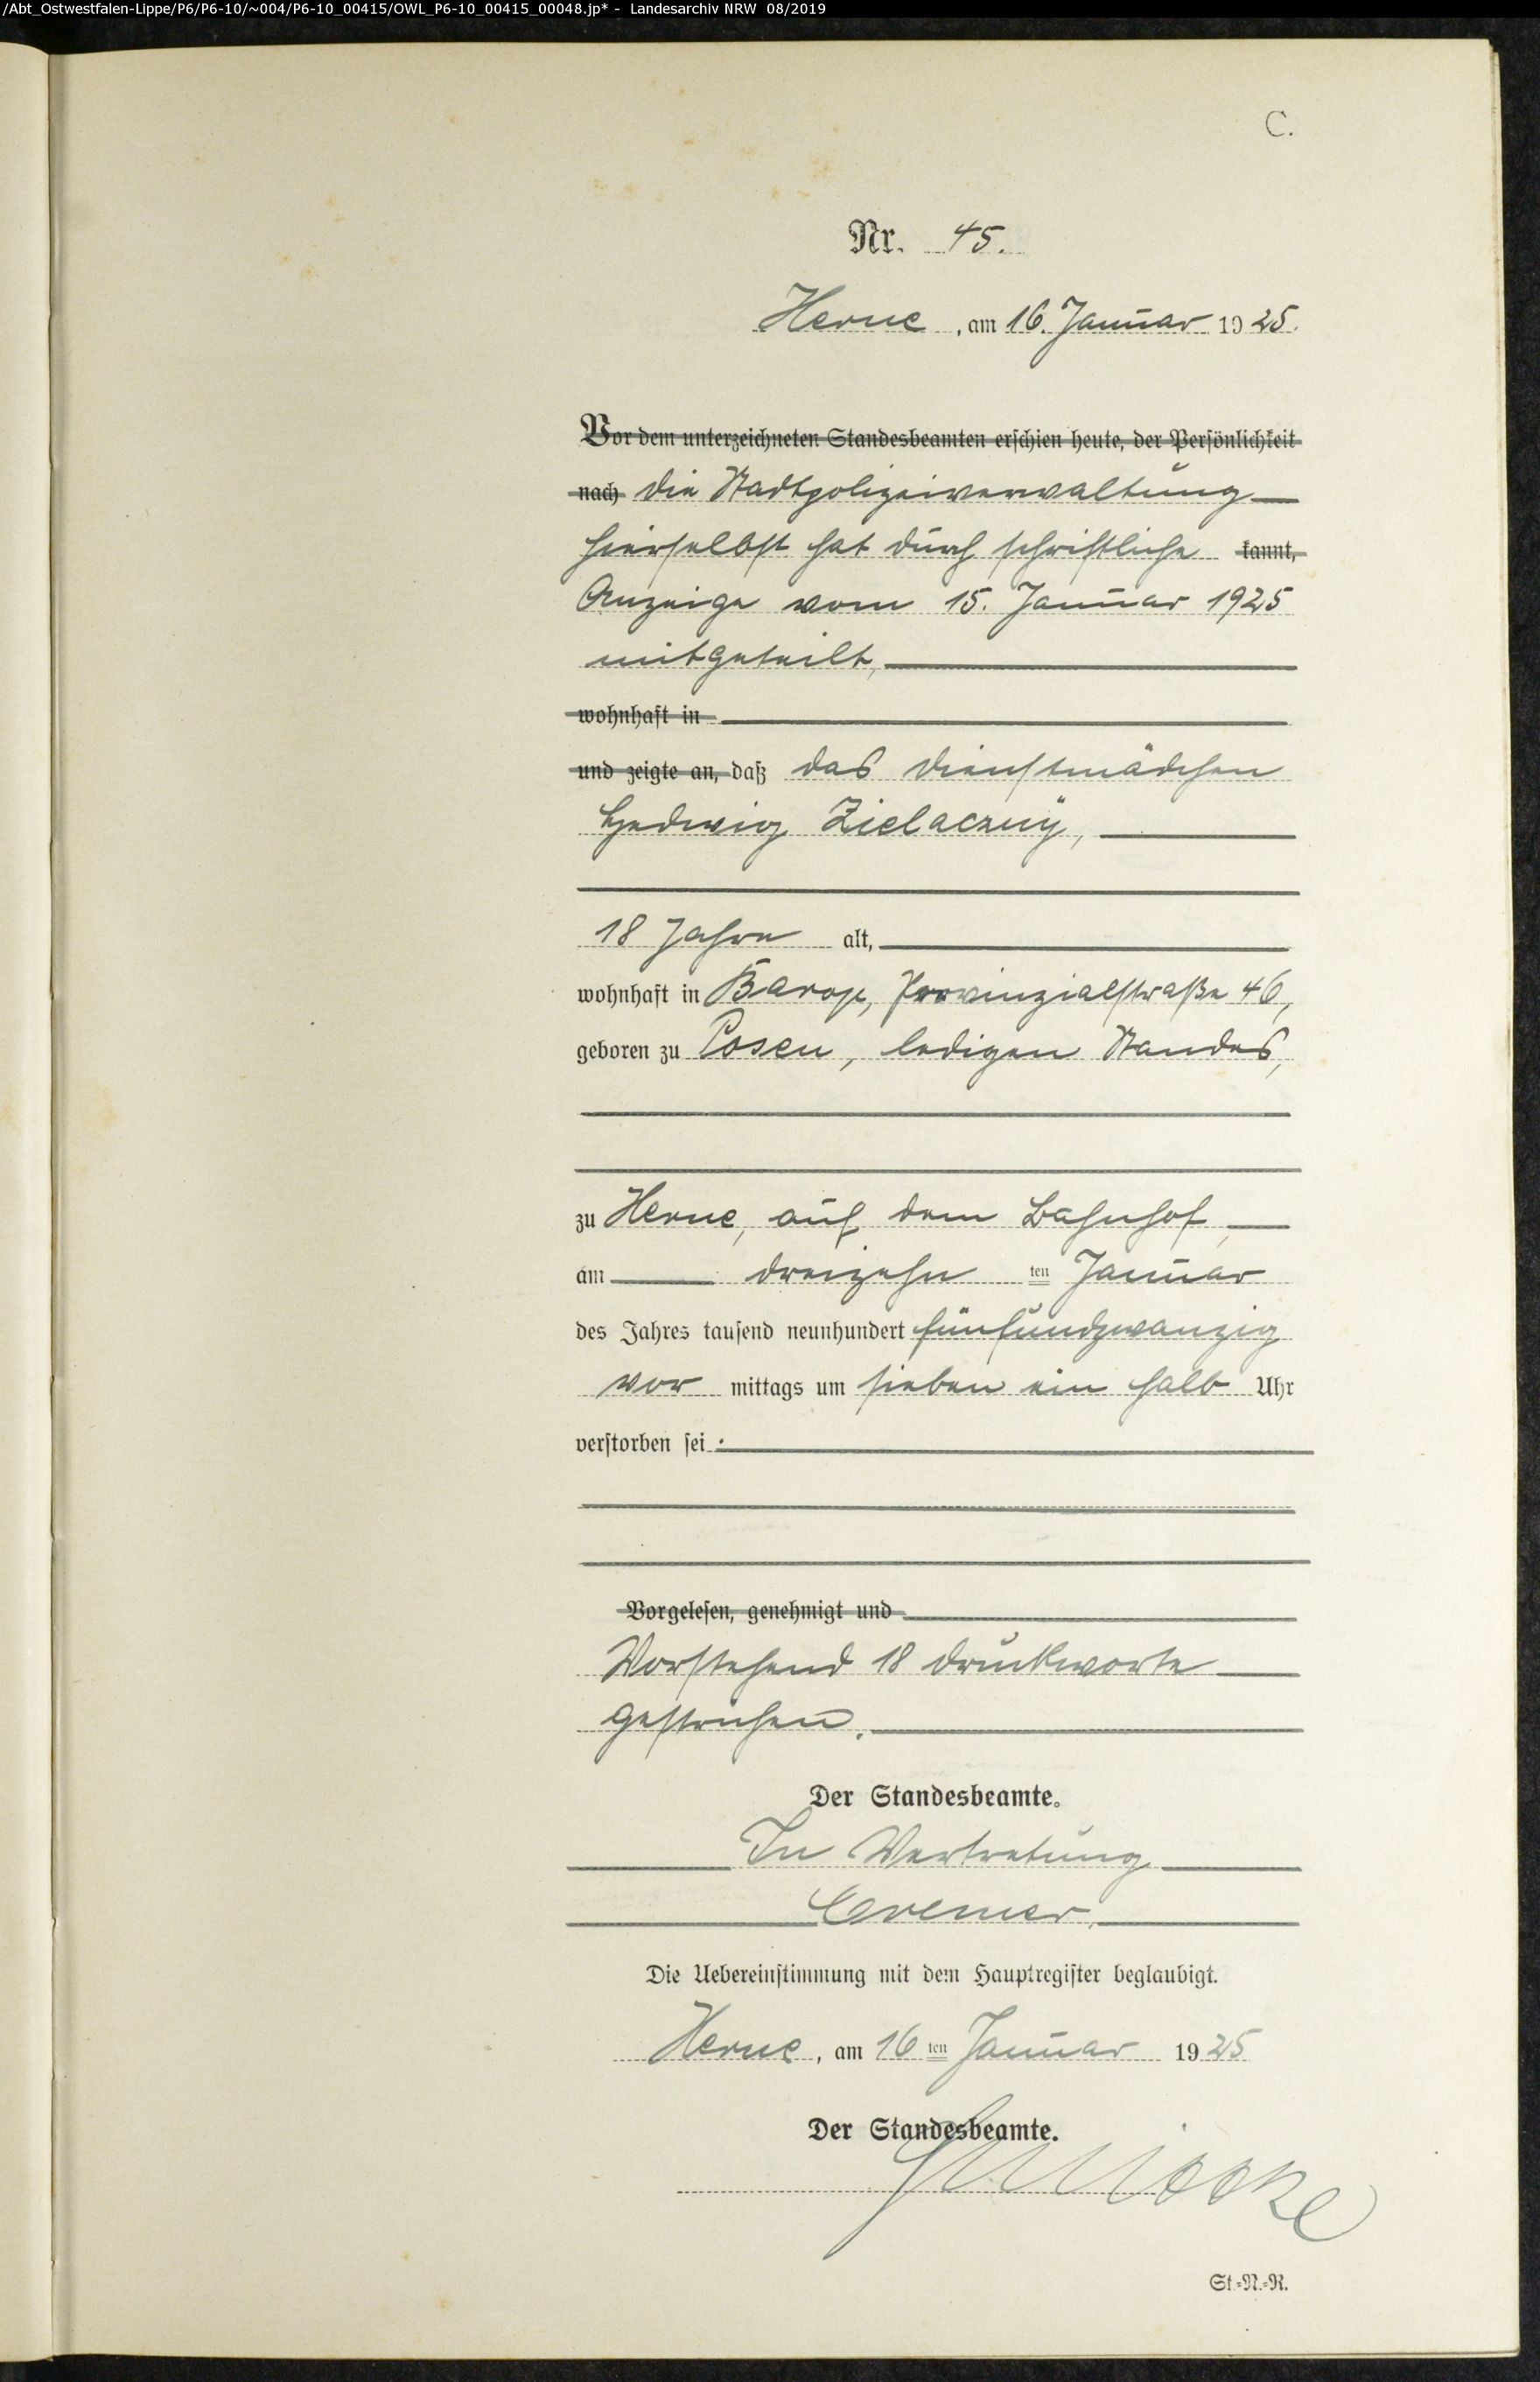 /Abt_Ostwestfalen-Lippe/P6/P6-10/~004/P6-10_00415/OWL_P6-10_00415_00048.jp* - Landesarchiv NRW 08/2019
C.
Nr. 45.
Herne, am 16. Januar 1925.
Vor dem unterzeichneten Standesbeamten erschien heute, der Persönlichkeit
nach die Stadtpolizeiverwaltung
hierselbst hat durch schriftliche kannt,
Anzeige vom 15. Januar 1925
mitgeteilt,
wohnhaft in
und zeigte an, daß das Dienstmädchen
Hedwig Zielaczny,
18 Jahre alt,
wohnhaft in Barop, Provinzialstraße 46,
geboren zu Posen, ledigen Standes,
zu Herne, auf dem Bahnhof,
am dreizehn ten Januar
des Jahres tausend neunhundert fünfundzwanzig
vor mittags um sieben ein halb Uhr
verstorben sei.
Vorgelesen, genehmigt und
Vorstehend 18 Druckworte
gestrichen.
Der Standesbeamte.
In Vertretung
Cremer.
Die Uebereinstimmung mit dem Hauptregister beglaubigt.
Herne, am 16 ten Januar 1925
Der Standesbeamte.
St.=N.=R.